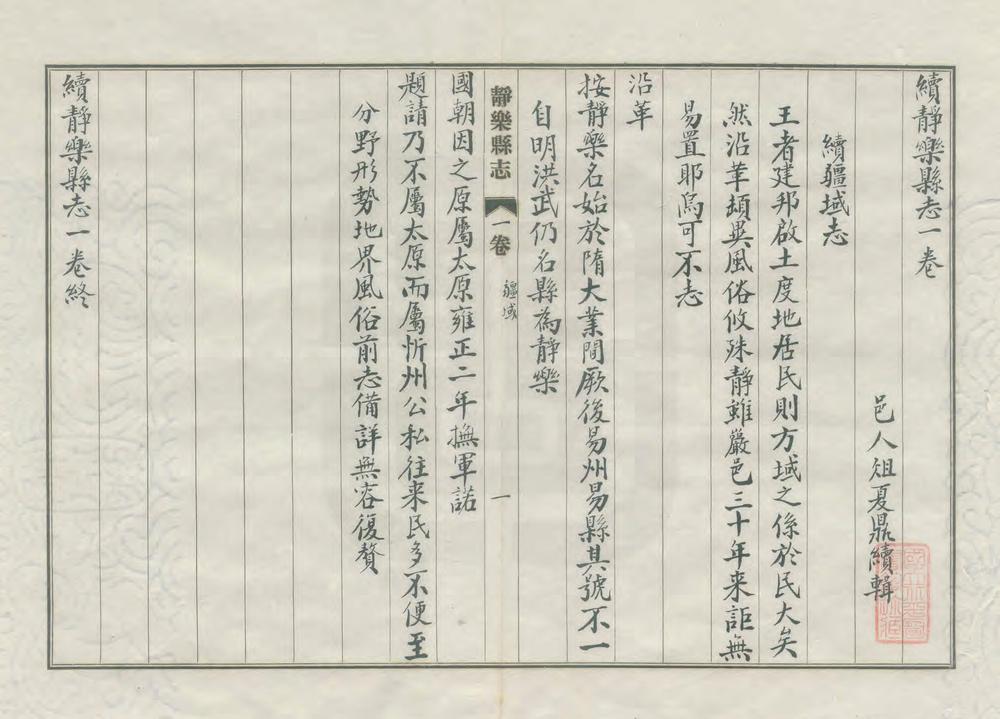 續靜樂縣志一卷
邑人俎夏鼎續輯
續疆域志
王者建邦啟土度地居民則方域之係於民大矣
然沿革頗異風俗攸殊靜雖巖邑三十年来詎無
易置耶焉可不志
沿革
按靜樂名始於隋大業間厥後易州易縣其號不一
自明洪武仍名縣為靜樂
靜樂縣志 一卷 疆域 一
國朝因之原屬太原雍正二年撫軍諾
題請乃不屬太原而屬忻州公私往来民多不便至
分野形勢地界風俗前志備詳無容復贅
續靜樂縣志一卷終